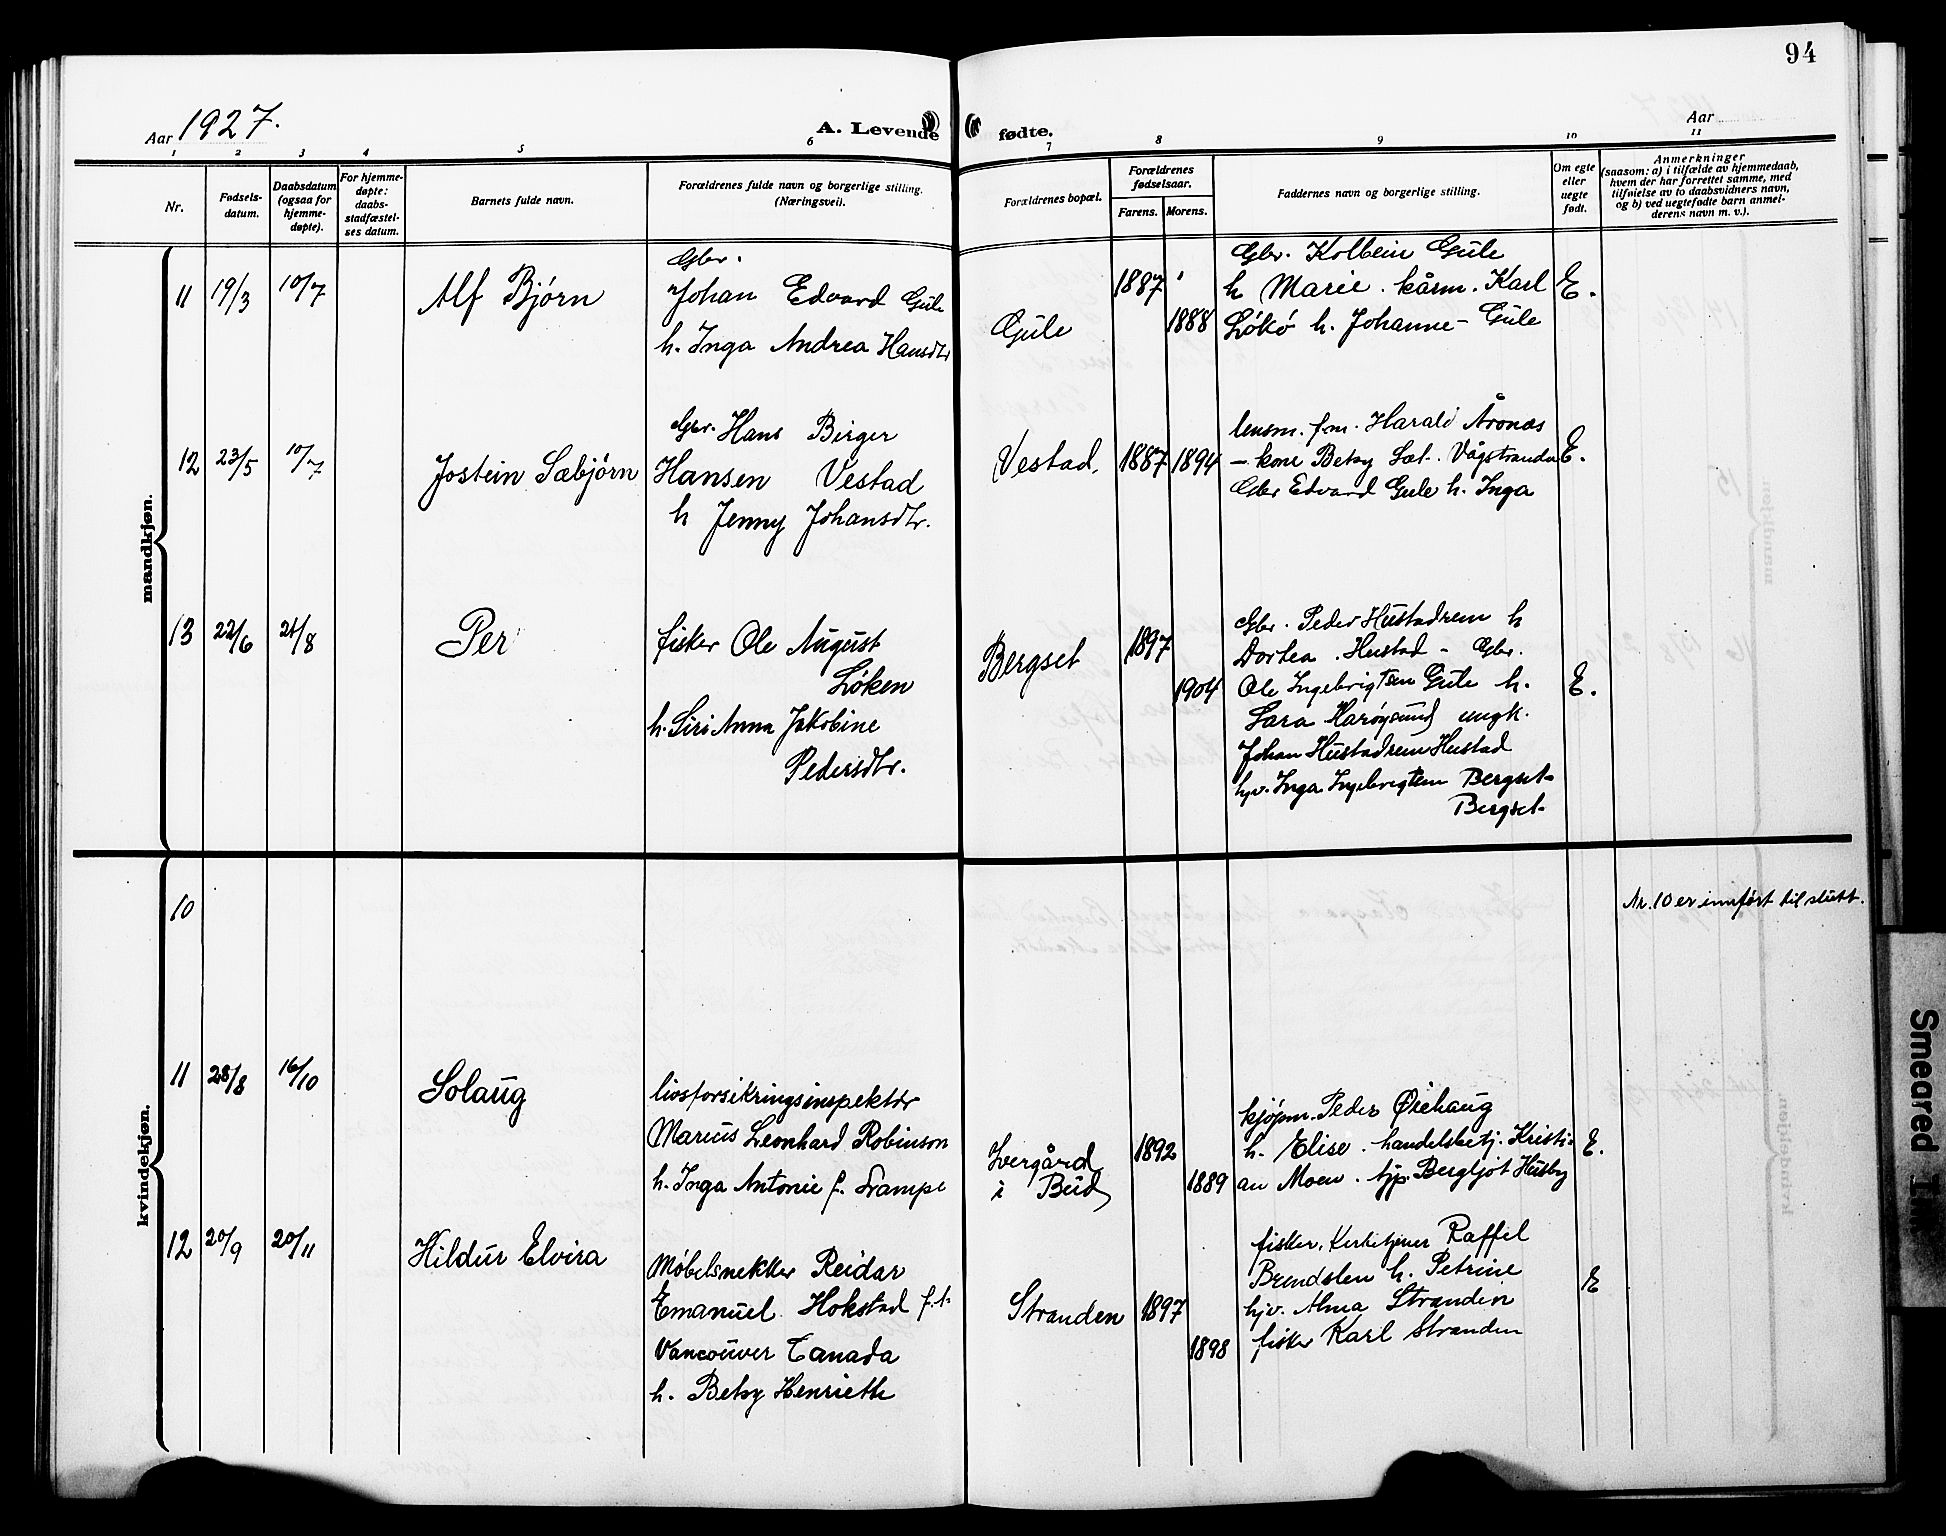 94
Aar 1927.
A. Levende fødte.
Aar
1 2 3 4 5 6 7 8 9 10 11
Nr.
Fødsels-
datum.
Daabsdatum
(ogsaa for
hjemme-
døpte).
For hjemme-
døpte:
daabs-
stadfæstel-
ses datum.
Barnets fulde navn.
Forældrenes fulde navn og borgerlige stilling.
(Næringsvei).
Forældrenes bopæl.
Forældrenes
fødselsaar.
Farens. Morens.
Faddernes navn og borgerlige stilling.
Om egte
eller
uegte
født.
Anmerkninger
(saasom: a) i tilfælde av hjemmedaab,
hvem der har forrettet samme, med
tilføielse av to daabsvidners navn,
og b) ved uegtefødte barn anmel-
derens navn m. v.).
mandkjøn.
11 19/3 10/7 Alf Bjørn
Gbr.
Johan Edvard Gule
h. Inga Andrea Hansdtr
Gule 1887 1888
Gbr. Kolbein Gule
h Marie . kårm. Karl
Løkø h. Johanne - Gule
E.
12 23/5 10/7 Jostein Sæbjørn
Gbr. Hans Birger
Hansen Vestad
h Jenny Johansdtr.
Vestad, 1887 1894
lensm. fm. Harald Åronas
- kone Betsy Sæt. Vågstranda
Gbr Edvard Gule h. Inga
E.
13 22/6 21/8 Per
fisker Ole August
Løken
h. Siri Anna Jakobine
Pedersdtr.
Bergset 1897 1904
Gbr. Peder Hustadrem h
Dortea . Hustad - Gbr.
Ole Ingebrigtsen Gule h.
Sara Harøysund ungk.
Johan Hustadrem Hustad
hjv. Inga Ingebrigtsen Bergset
Bergset
E.
kvindekjøn.
10
Nr. 10 er innført til slutt.
11 28/8 16/10 Solaug
livsforsikringsinspektør
Marius Leonhard Robinson
h. Inga Antonie f. Trampe
Ivergård
i Bud
1892 1889
kjøpm. Peder Øiehaug
h. Elise . handelsbetj. Kristi-
an Moen . tjp. Bergljot Husby
E.
12 20/9 20/11 Hildur Elvira
Møbelsnekker Reidar
Emanuel Hokstad f.t.
Vancouver Canada
h. Betsy Henriette
Stranden 1897 1898
fisker, Kirketjener Raffel
Brendslen h. Petrine
hjv. Alma Stranden
fisker Karl Stranden
E
Smeared Ink